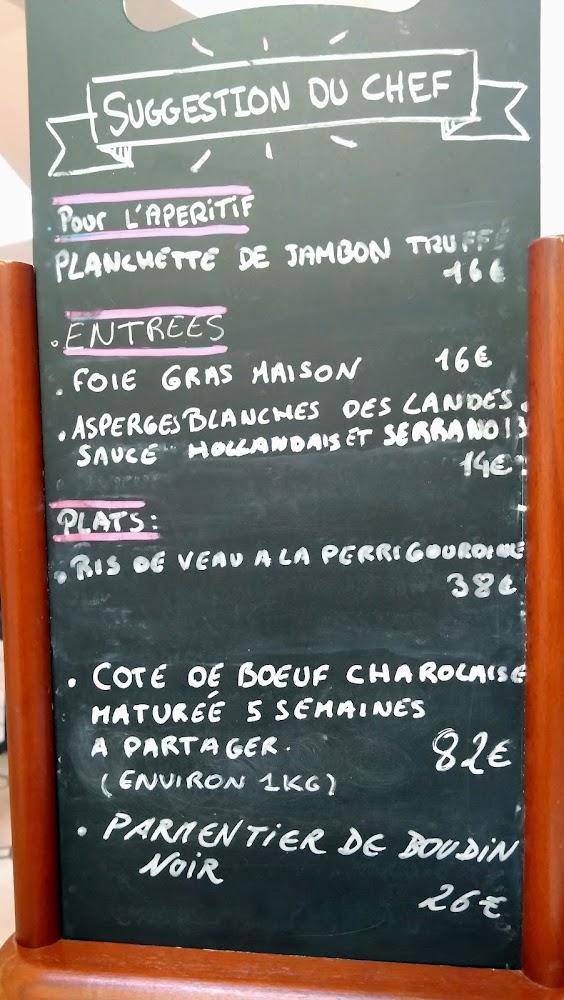 SUGGESTION DU CHEF
POUR L'APERITIF
PLANCHETTE DE JAMBON TRUFFE
16€
• ENTREES
• FOIE GRAS MAISON 16€
• ASPERGES BLANCHES DES LANDES
SAUCE HOLLANDAIS ET SERRANO
14€
PLATS:
• RIS DE VEAU A LA PERRIGOURDINE
38€
• COTE DE BOEUF CHAROLAISE
MATURÉE 5 SEMAINES
A PARTAGER. 82€
(ENVIRON 1KG)
• PARMENTIER DE BOUDIN
NOIR
26€